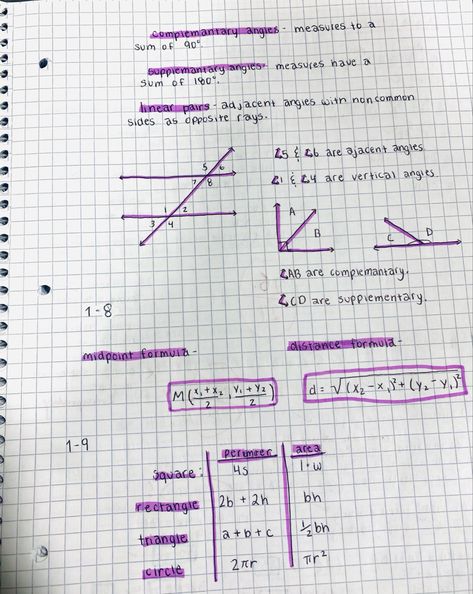 complemantary angles - measures to a
sum of 90°.
supplemantary angles - measures have a
sum of 180°.
linear pairs - adjacent angles with noncommon
sides as opposite rays.
5 6
7 8
1 2
3 4
∠5 & ∠6 are ajacent angles
∠1 & ∠4 are vertical angles
A
B
C D
∠AB are complemantary.
∠CD are supplementary.
1-8
midpoint formula -
distance formula -
M(x₁+x₂/2, y₁+y₂/2)
d = √(x₂-x₁)²+(y₂-y₁)²
1-9
perimeter area
square: 4s l·w
rectangle 2b + 2h bh
triangle a+b+c ½bh
circle 2πr πr²